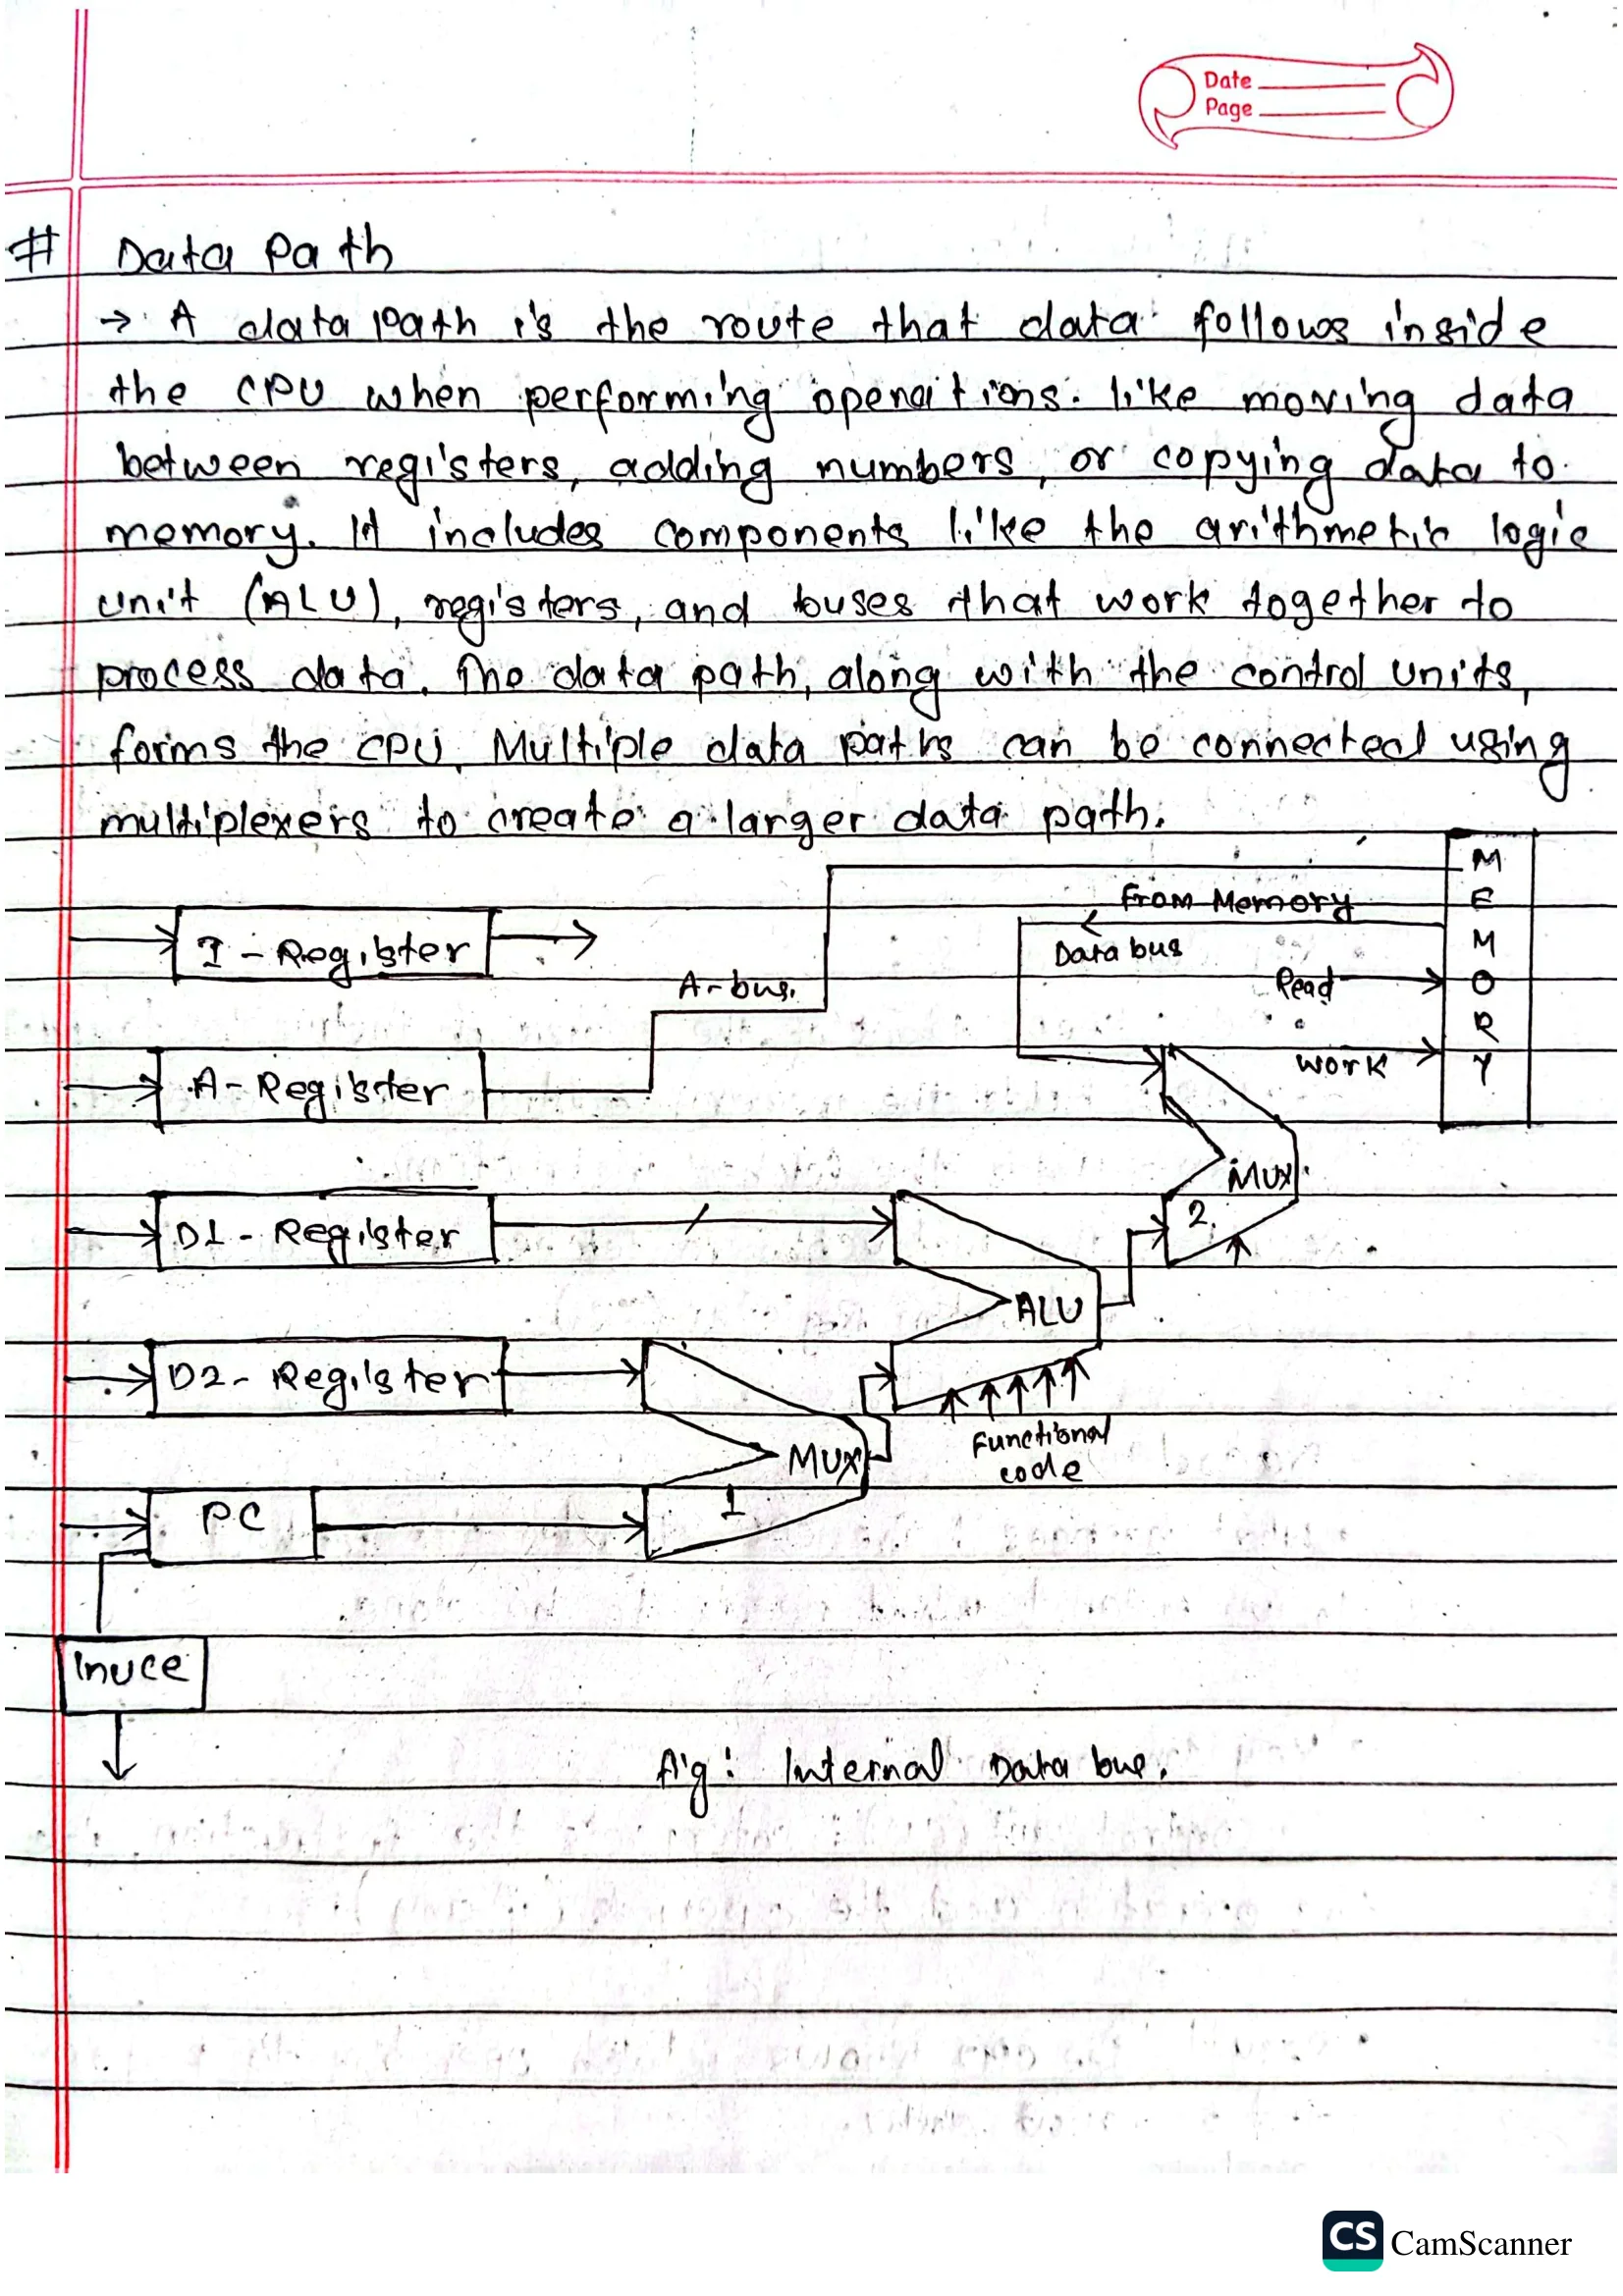 Date
Page
# Data Path
→ A data path is the route that data follows inside
the CPU when performing operations. like moving data
between registers, adding numbers, or copying data to
memory. It includes components like the arithmetic logic
unit (ALU), registers, and buses that work together to
process data. The data path, along with the control units,
forms the CPU. Multiple data paths can be connected using
multiplexers to create a larger data path.
MEMORY
From Memory
I - Register
Data bus
A-bus.
Read
A - Register
work
MUX
2.
D1 - Register
ALU
D2 - Register
Functional
code
MUX
1
PC
Inuce
fig: Internal Data bus.
CS CamScanner